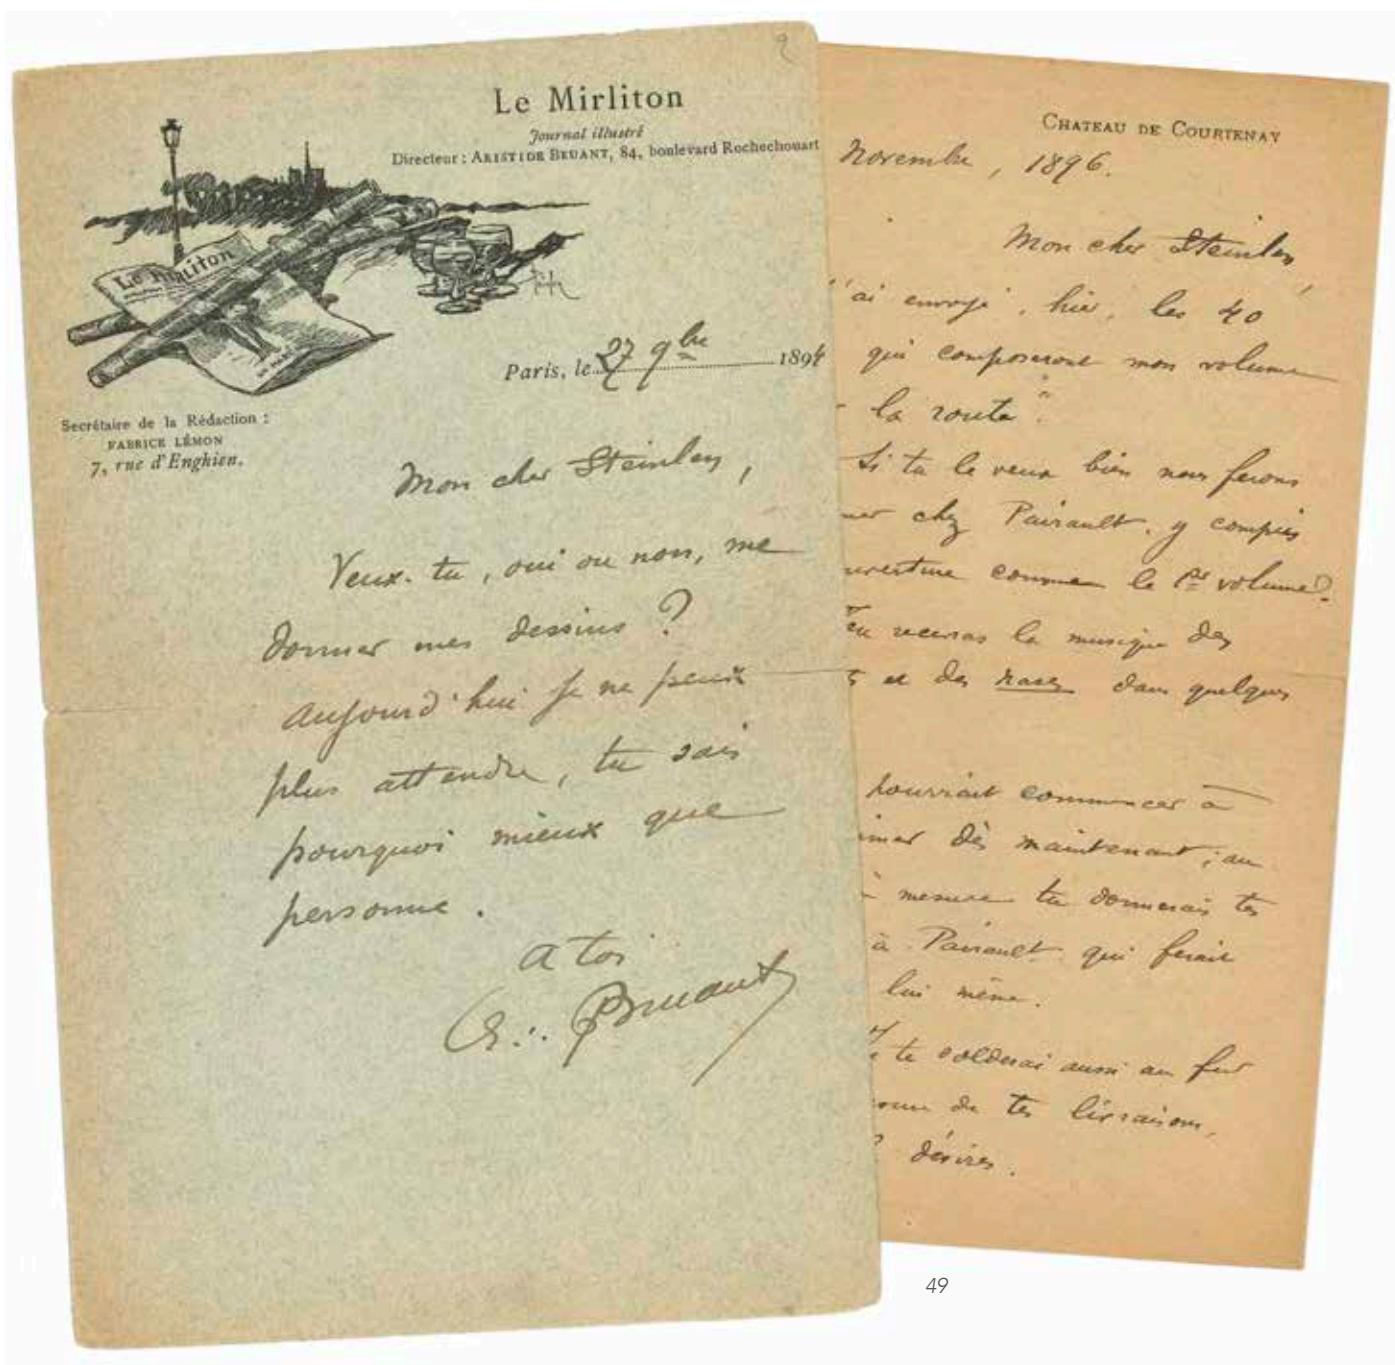 2
Le Mirliton
Journal illustré
Directeur : ARISTIDE BRUANT, 84, boulevard Rochechouart
Le Mirliton
Paris, le 27 9bre 1894
Secrétaire de la Rédaction :
FABRICE LÉMON
7, rue d'Enghien.
Mon cher Steinlen,
Veux-tu, oui ou non, me
donner mes dessins ?
Aujourd'hui je ne peux
plus attendre, tu sais
pourquoi mieux que
personne.
A toi
A. Bruant
CHATEAU DE COURTENAY
Novembre, 1896.
Mon cher Steinlen,
'ai envoyé, hier, les 40
qui composeront mon volume
la route".
Si tu le veux bien nous ferons
mer chez Pairault, y compris
uverture comme le 1er volume.
Tu recevras la musique des
s et des rares dans quelques
pourrait commencer à
imer dès maintenant ; au
à mesure tu donnerais tes
à Pairault qui ferait
lui même.
Je te solderai aussi au fur
sure de tes livraisons,
désires.
49